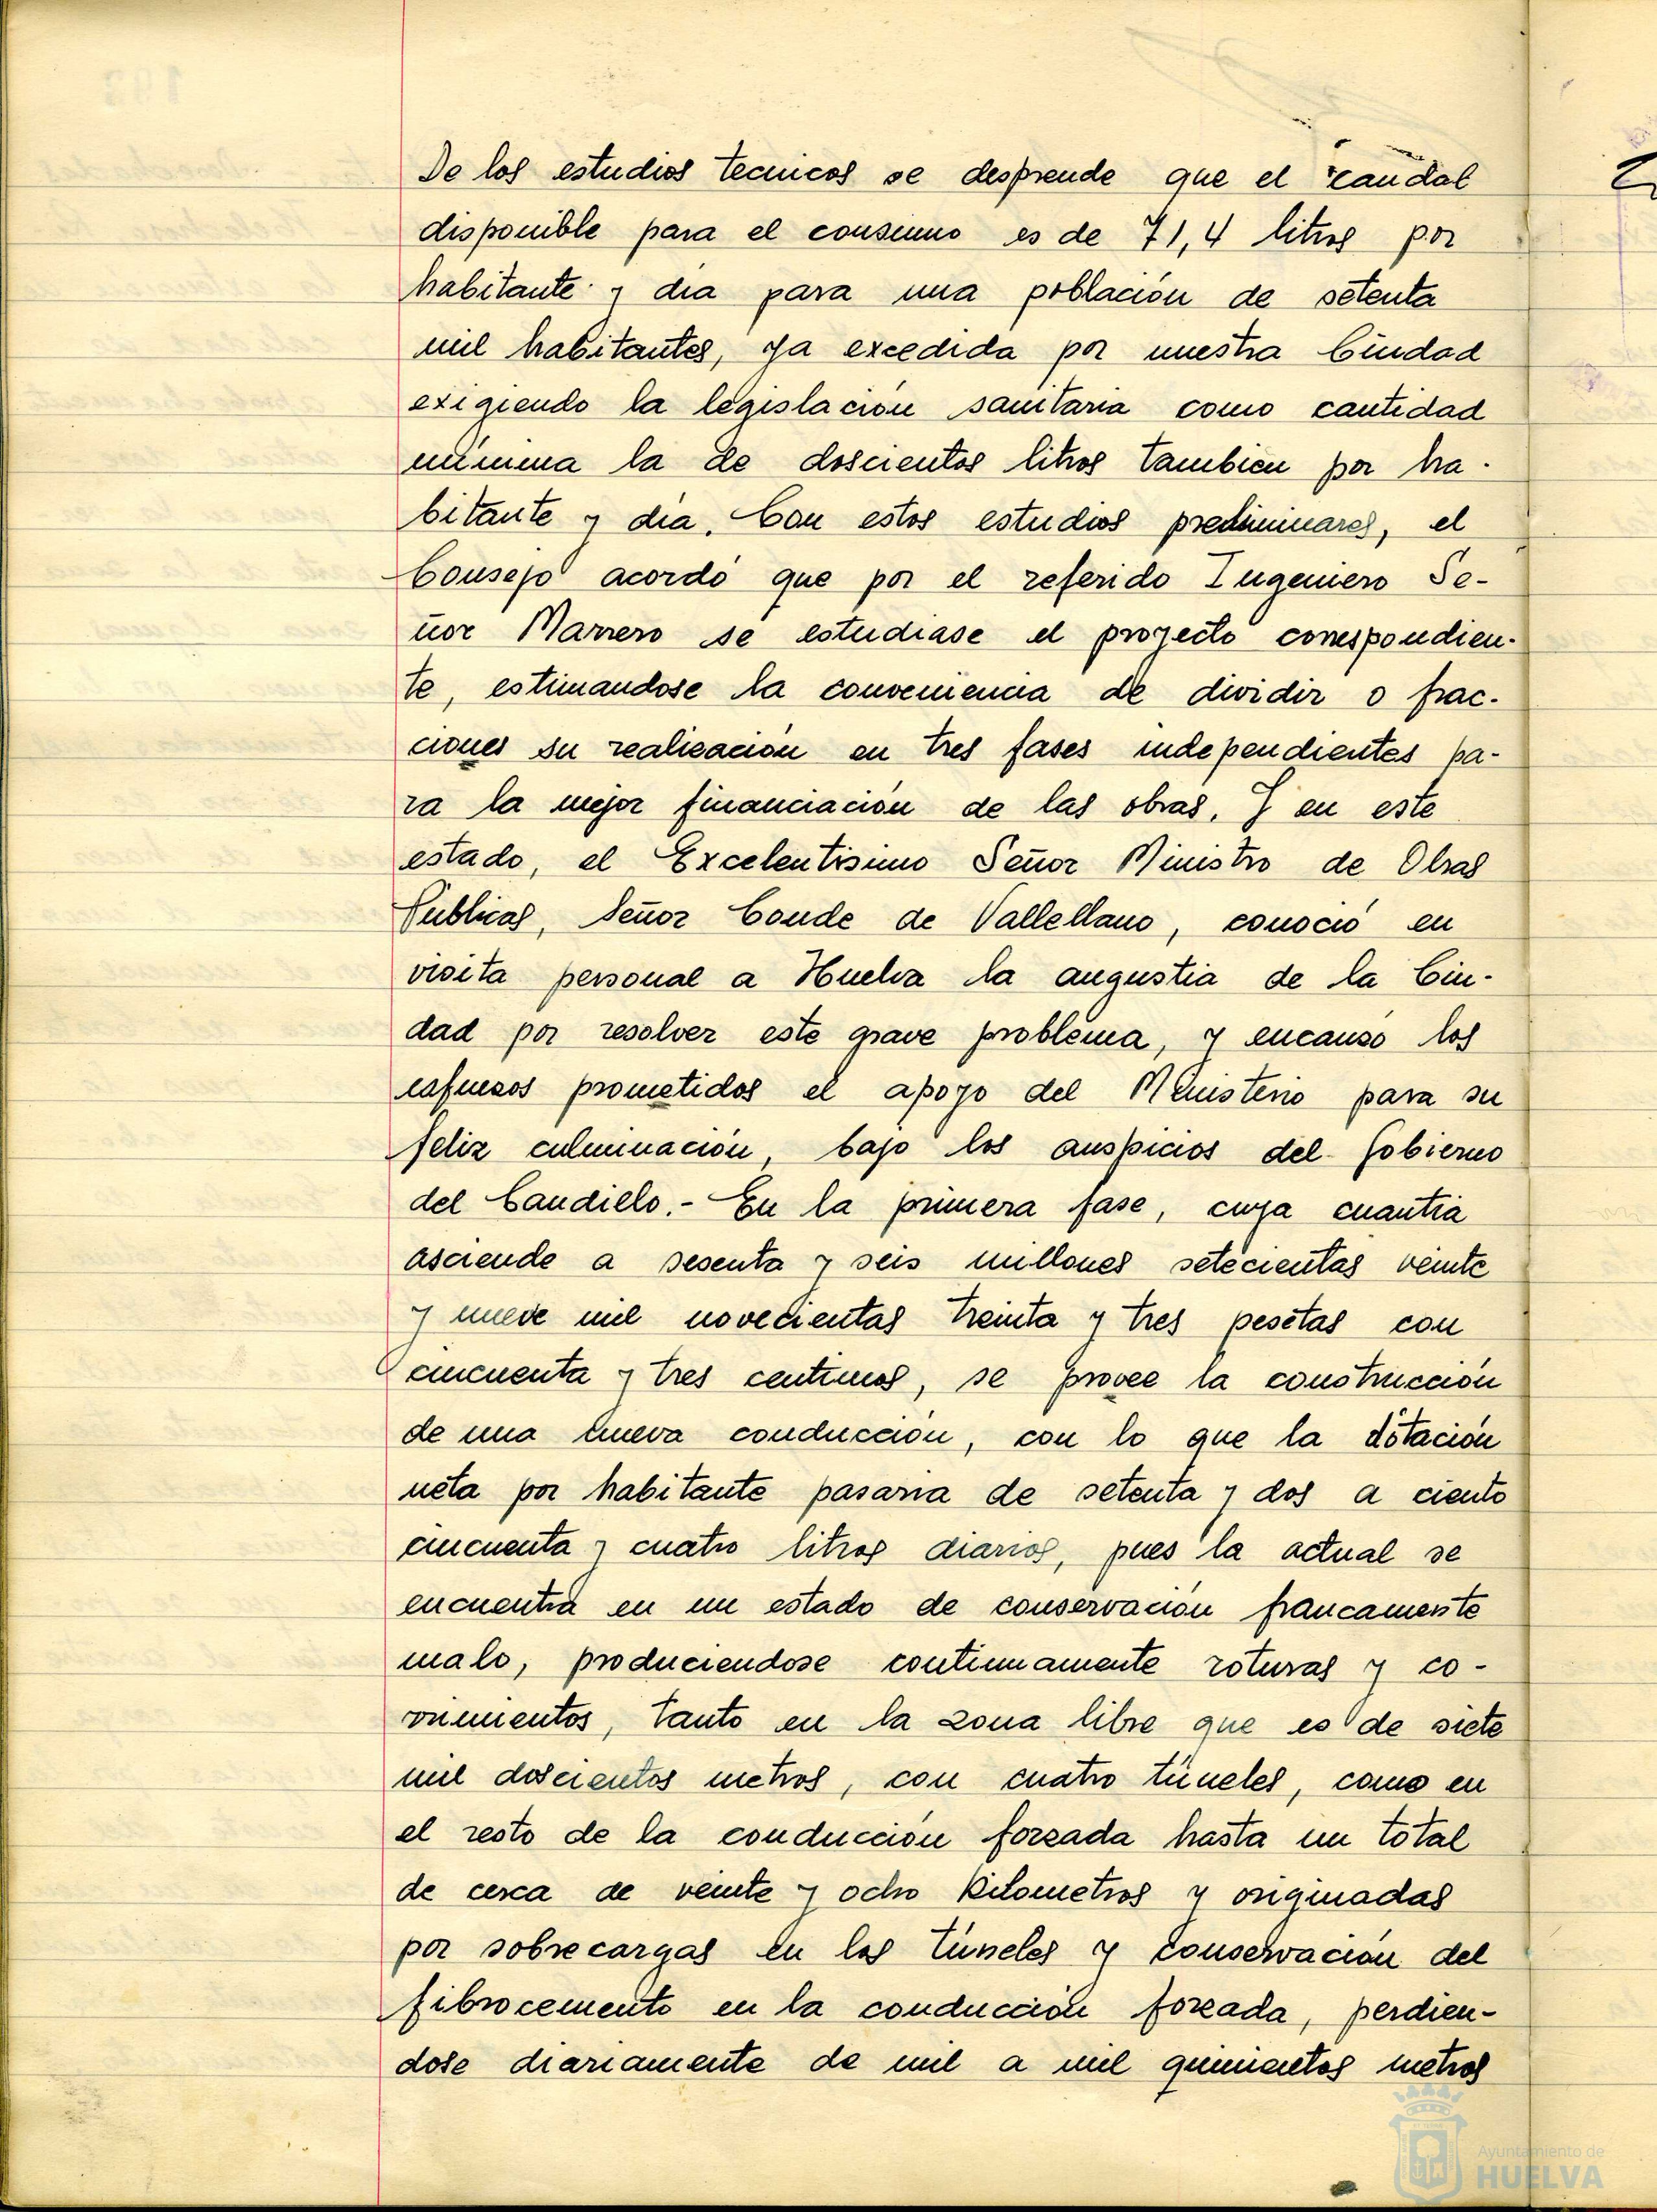 De los estudios tecnicos se desprende que el caudal
disponible para el consumo es de 71,4 litros por
habitante y dia para una población de setenta
mil habitantes, ya excedida por nuestra Ciudad
exigiendo la legislación sanitaria como cantidad
mínima la de doscientos litros tambien por ha-
bitante y día. Con estos estudios preliminares, el
Consejo acordó que por el referido Ingeniero Se-
ñor Marrero se estudiase el proyecto correspondien-
te, estimandose la conveniencia de dividir o frac-
ciones su realización en tres fases independientes pa-
ra la mejor financiación de las obras. Y en este
estado, el Excelentisimo Señor Ministro de Obras
Publicas, Señor Conde de Vallellano, conoció en
visita personal a Huelva la angustia de la Ciu-
dad por resolver este grave problema, y encauso los
esfuezos prometidos el apoyo del Ministerio para su
feliz culminación, bajo los auspicios del Gobierno
del Caudillo.- En la primera fase, cuya cuantia
asciende a sesenta y seis millones setecientas veinte
y nueve mil novecientas treinta y tres pesetas con
cincuenta y tres centimos, se provee la construcción
de una nueva conducción, con lo que la dotación
neta por habitante pasaria de setenta y dos a ciento
cincuenta y cuatro litros diarios, pues la actual se
encuentra en un estado de conservación francamente
malo, produciendose continuamente roturas y co-
rrimientos, tanto en la zona libre que es de siete
mil doscientos metros, con cuatro túneles, como en
el resto de la conducción forzada hasta un total
de cerca de veinte y ocho Kilometros y originadas
por sobrecargas en los túneles y conservación del
fibrocemento en la conducción forzada, perdien-
dose diariamente de mil a mil quinientos metros
Ayuntamiento de
HUELVA